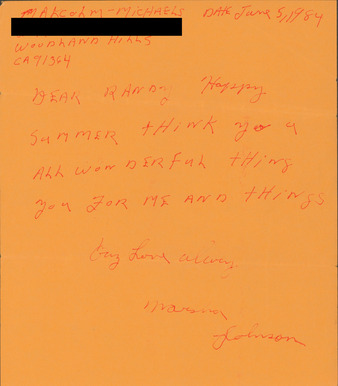 MALCOLM-MICHAELS DATE June 5, 1984
WOODLAND HILLS
CA 91364
DEAR RANDY Happy
SUMMER THINK you
ALL WONDERFUL THING
you FOR ME AND THINGS
Love
Johnson